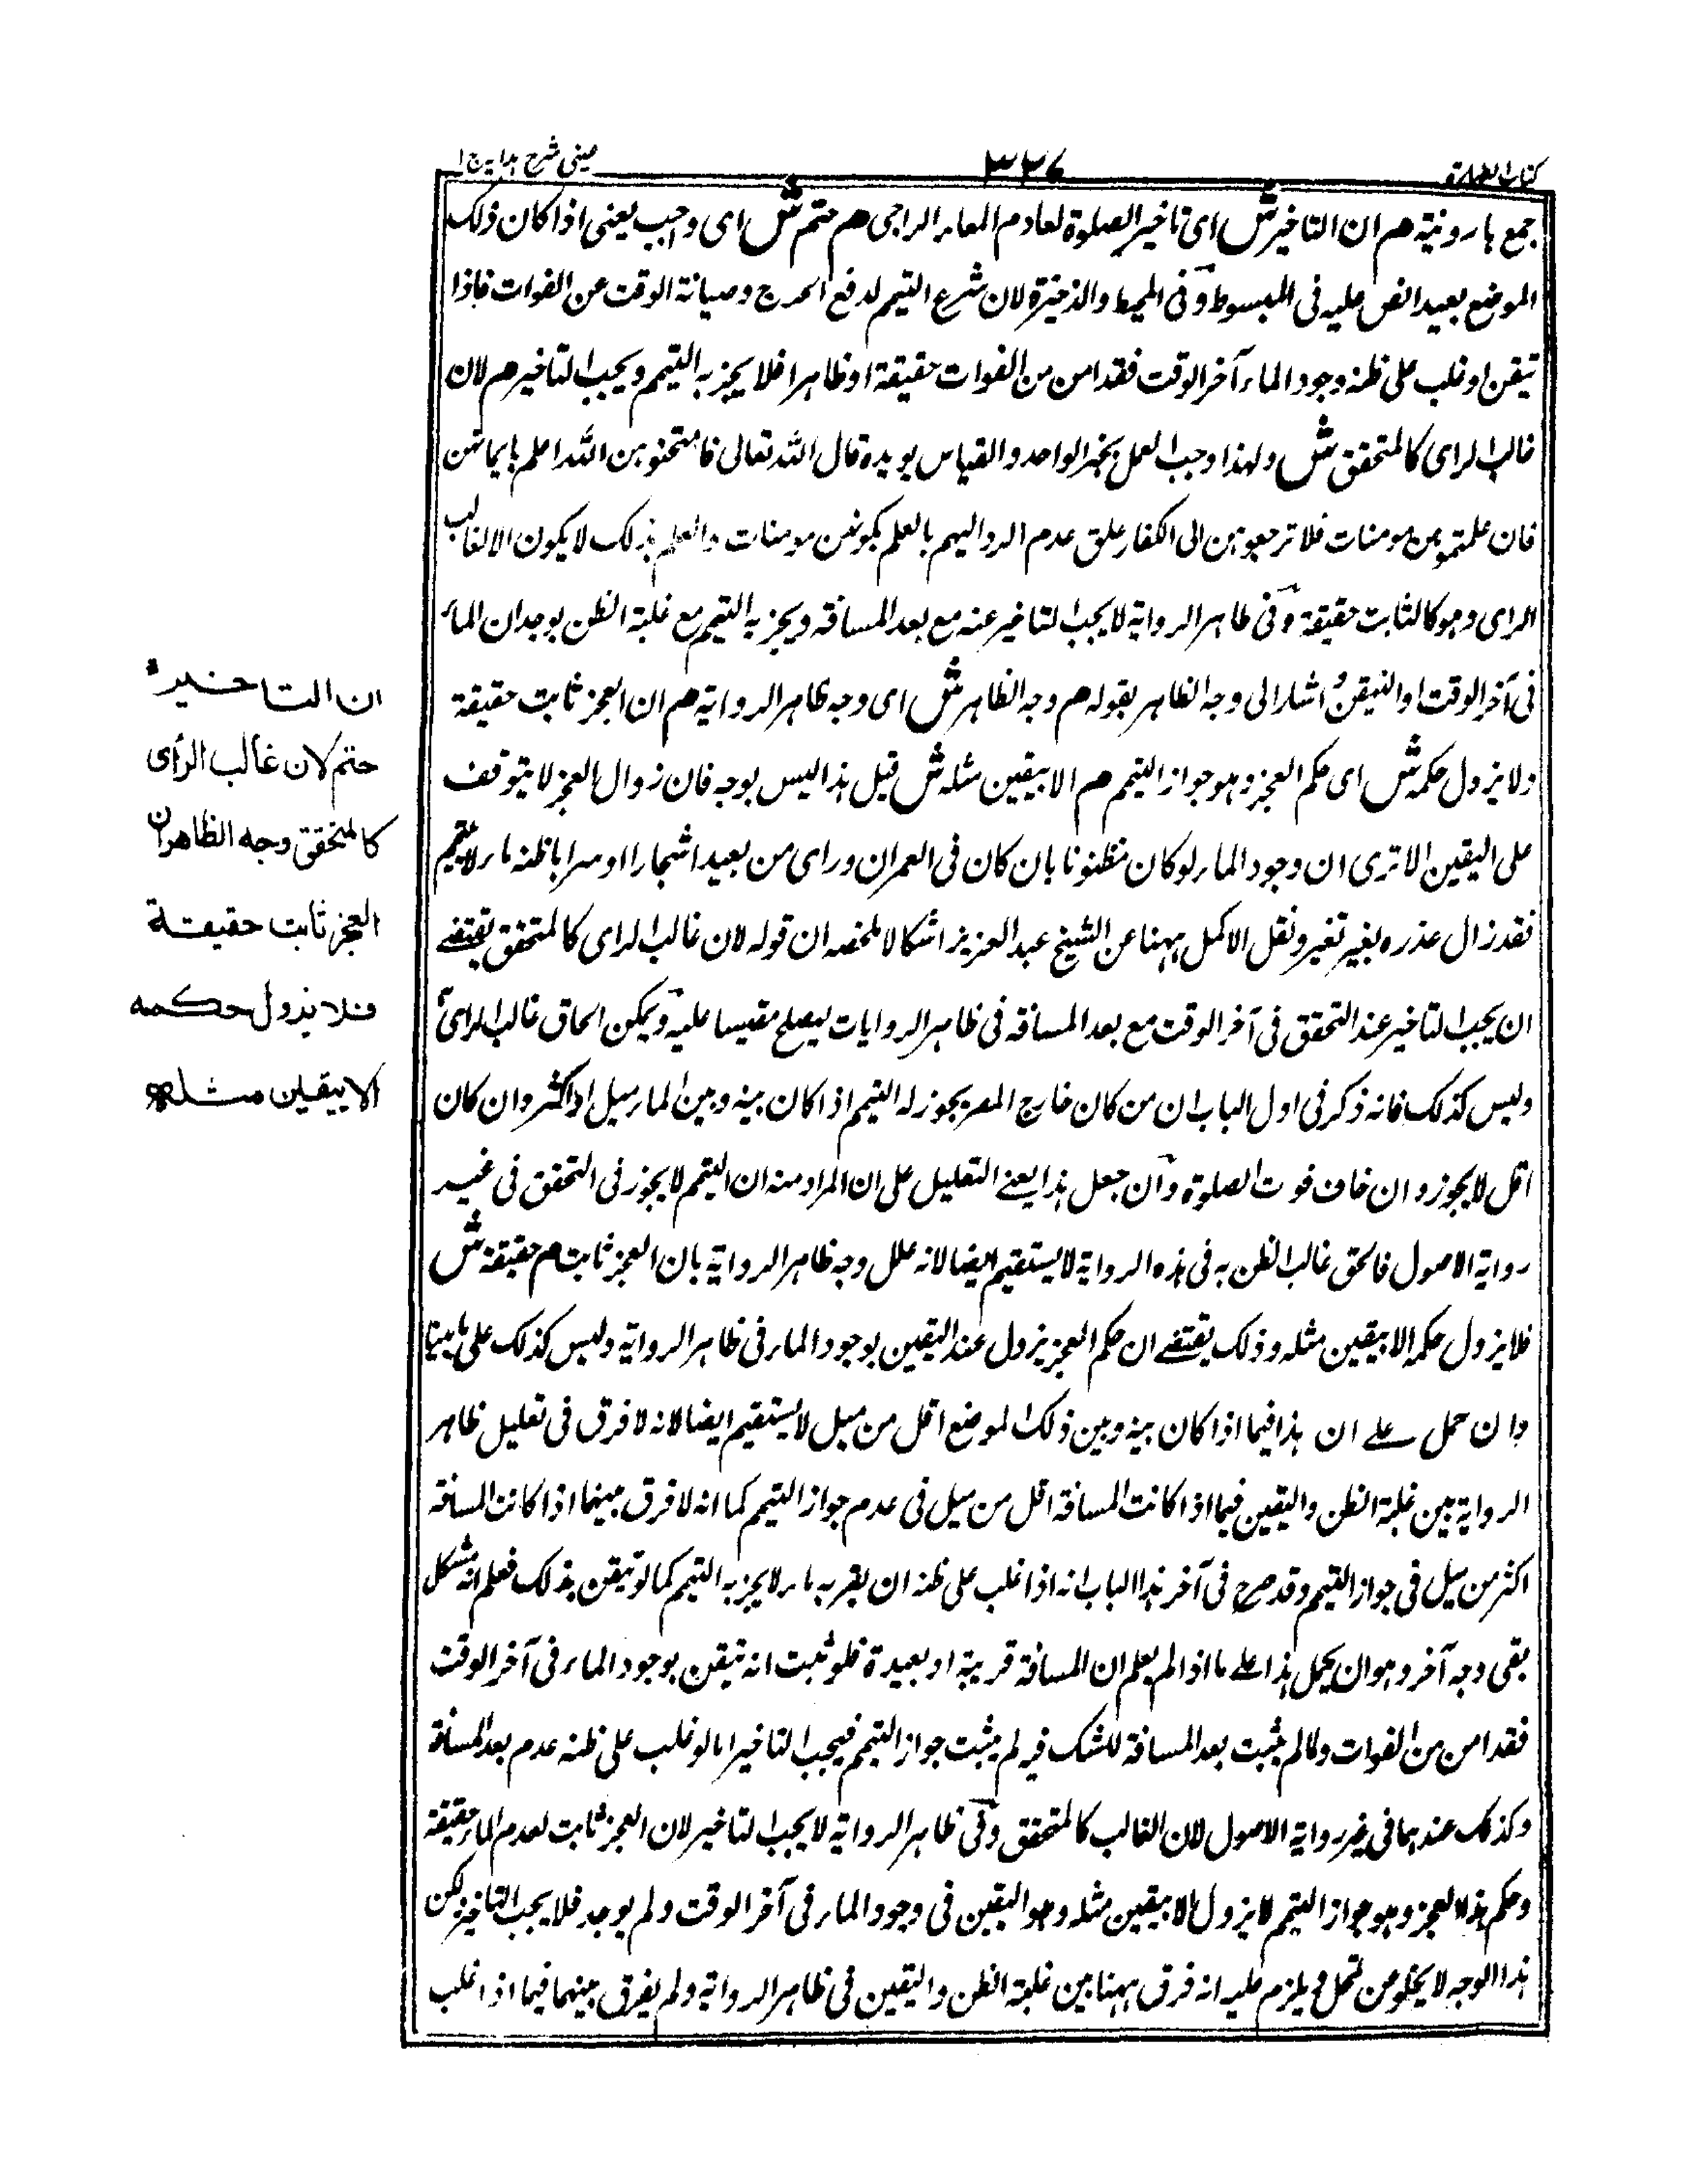 كتاب الطهارة
٣٢٧
عینی شرح هدایه ج ا
جمع ہا رونية هم ان التاخير ش اى تاخير الصلوة لعادم الماء الراجى هم حتم ش اى واجب يعنى اذا كان ذلك
الموضع بعيدا نص عليه فى المبسوط وفى المحيط والذخيرة لان شرع التيمم لدفع الحرج وصيانة الوقت عن الفوات فاذا
تيقن او غلب على ظنه وجود الماء آخر الوقت فقد امن من الفوات حقيقة او ظاهرا فلا يجزيه التيمم ويجب التاخير هم لان
غالب الراى كالمتحقق ش ولهذا وجب العمل بخبر الواحد والقياس يويده قال الله تعالى فامتحنوهن الله اعلم بايمانهن
فان علمتموهن مومنات فلا ترجعوهن الى الكفار علق عدم الرد اليهم بالعلم بكونهن مومنات والعلم بذلك لا يكون الا لغالب
الراى وهو كالثابت حقيقة وفى ظاهر الرواية لا يجب التاخير عنه مع بعد المسافة ويجزيه التيمم مع غلبة الظن بوجدان الماء
فى آخر الوقت او التيقن واشار الى وجه الظاهر بقوله هم وجه الظاهر ش اى وجه ظاهر الرواية هم ان العجز ثابت حقيقة
ولا يزول حكمه ش اى حكم العجز وهو جواز التيمم هم الا بيقين مثله ش قيل هذا ليس بوجه فان زوال العجز لا يتوقف
على اليقين الا ترى ان وجود الماء لو كان مظنونا بان كان فى العمران وراى من بعيد اشجارا او سرابا ظنه ماء لا يتيمم
فقد زال عذره بغير تغير ونقل الاكمل ههنا عن الشيخ عبد العزيز اشكالا ملخصه ان قوله لان غالب الراى كالمتحقق يقتضے
ان يجب التاخير عند التحقق فى آخر الوقت مع بعد المسافة فى ظاهر الروايات ليصلح مقيسا عليه ويمكن الحاق غالب الراى به
وليس كذلك فانه ذكر فى اول الباب ان من كان خارج المصر يجوز له التيمم اذا كان بينه وبين الماء ميل او اكثر وان كان
اقل لا يجوز وان خاف فوت الصلوة وان جعل هذا يعنے التعليل على ان المراد منه ان التيمم لا يجوز فى التحقق فى غير
رواية الاصول فالحق غالب الظن به فى هذه الرواية لا يستقيم ايضا لانه علل وجه ظاهر الرواية بان العجز ثابت هم حقيقة ش
فلا يزول حكمه الا بيقين مثله وذلك يقتضے ان حكم العجز يزول عند اليقين بوجود الماء فى ظاهر الرواية وليس كذلك على ما بينا
وان حمل علے ان هذا فيما اذا كان بينه وبين ذلك الموضع اقل من ميل لا يستقيم ايضا لانه لا فرق فى تعليل ظاهر
الرواية بين غلبة الظن واليقين فيما اذا كانت المسافة اقل من ميل فى عدم جواز التيمم كما انه لا فرق بينهما اذا كانت المسافة
اكثر من ميل فى جواز التيمم وقد صرح فى آخر هذا الباب انه اذا غلب على ظنه ان بقربه ماء لا يجزيه التيمم كما لو تيقن بذلك فعلم انه مشكل
بقى وجه آخر وهو ان يحمل هذا علے ما اذا لم يعلم ان المسافة قريبة او بعيدة فلو ثبت انه تيقن بوجود الماء فى آخر الوقت
فقد امن من الفوات ولما لم يثبت بعد المسافة للشك فيه لم يثبت جواز التيمم فيجب التاخير اما لو غلب على ظنه عدم بعد المسافة
وكذلك عندهما فى غير رواية الاصول لان الغالب كالمتحقق وفى ظاهر الرواية لا يجب التاخير لان العجز ثابت لعدم الماء حقيقة
وحكم هذا العجز وهو جواز التيمم لا يزول الا بيقين مثله وهو اليقين فى وجود الماء فى آخر الوقت ولم يوجد فلا يجب التاخير لكن
هذا الوجه لا يخلو من تمحل ويلزم عليه انه فرق ههنا بين غلبة الظن واليقين فى ظاهر الرواية ولم يفرق بينهما فيما اذا غلب
ان التاخير
حتم لان غالب الرأى
كالمتحقق وجه الظاهر ان
العجز ثابت حقيقة
فلا يزول حكمه
الا بيقين مثله